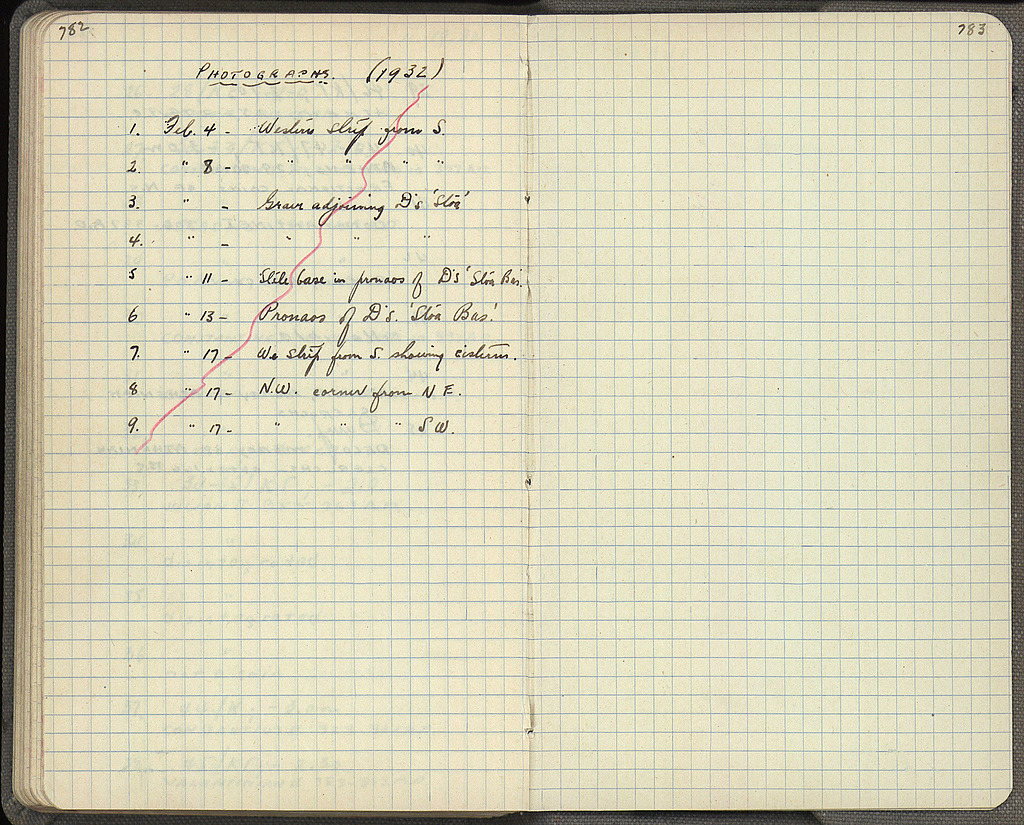 782
783
PHOTOGRAPHS. (1932)
1. Feb. 4 - Western Strip from S.
2. " 8 - " " " "
3. " - Grave adjoining D's 'Stoa'
4. " - " " "
5 " 11 - Stele base in pronaos of D's 'Stoa Bas.
6 " 13 - Pronaos of D's. 'Stoa Bas.'
7. " 17 - We strip from S. showing cisterns.
8 " 17 - N.W. corner from N E.
9. " 17 - " " " S W.